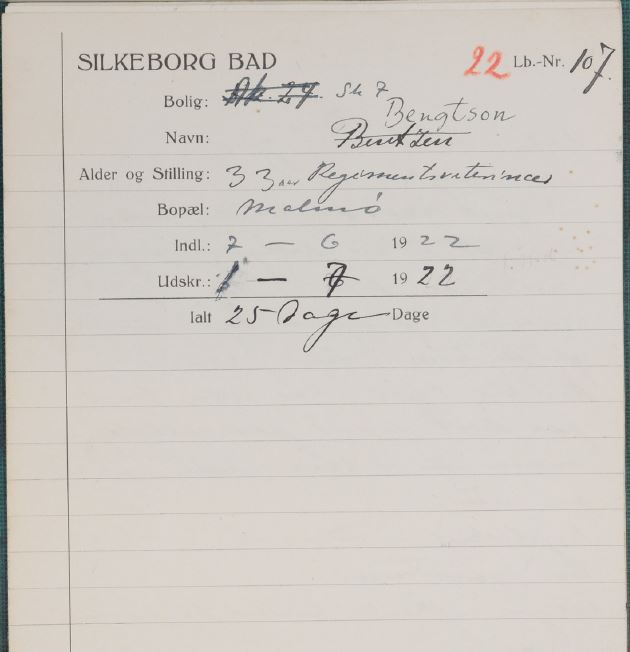 SILKEBORG BAD 22 Lb.-Nr. 107.
Bolig: Sk 7
Bengtson
Navn: Bentzen
Alder og Stilling: 33 aar Regimentsveterinær
Bopæl: Malmö
Indl.: 7 — 6 1922
Udskr.: 1 — 7 1922
Ialt 25 Dage Dage